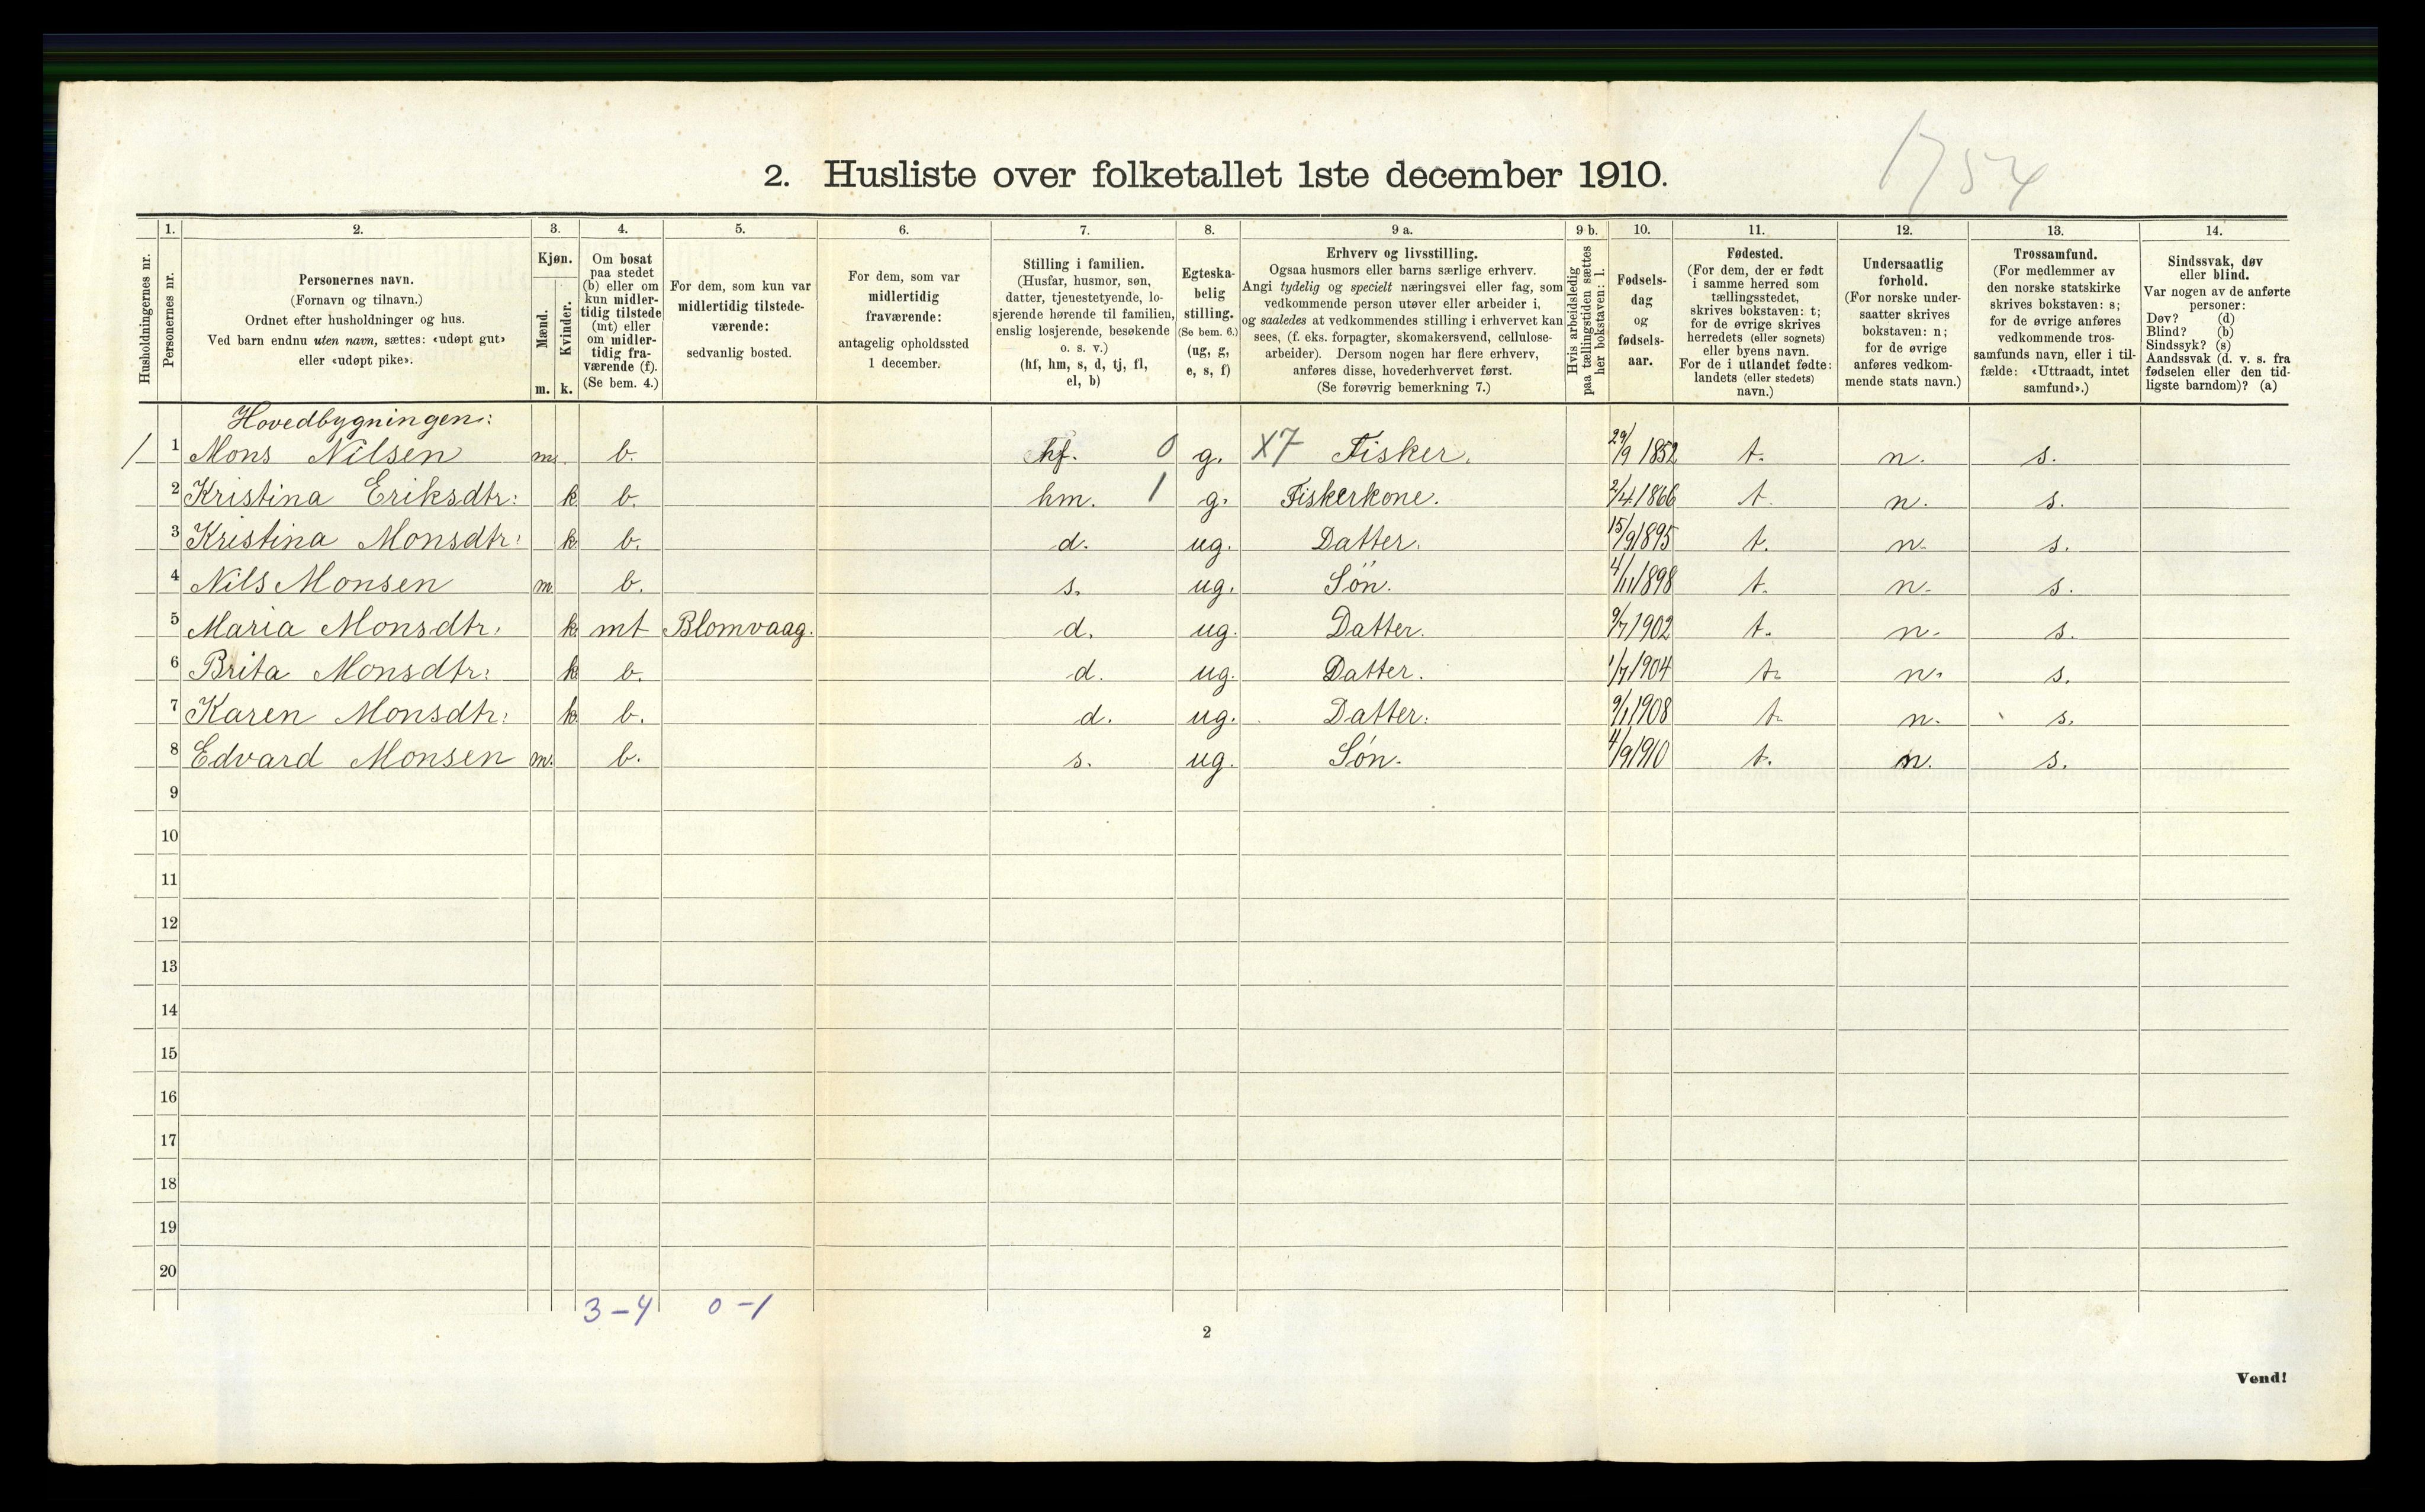 1754
2. Husliste over folketallet 1ste december 1910.
Husholdningernes nr.
1. Personernes nr.
2. Personernes navn.
(Fornavn og tilnavn.)
Ordnet efter husholdninger og hus.
Ved barn endnu uten navn, sættes: «udøpt gut»
eller «udøpt pike».
3. Kjøn.
Mænd. Kvinder.
m. k.
4. Om bosat
paa stedet
(b) eller om
kun midler-
tidig tilstede
(mt) eller
om midler-
tidig fra-
værende (f).
(Se bem. 4.)
5. For dem, som kun var
midlertidig tilstede-
værende:
sedvanlig bosted.
6. For dem, som var
midlertidig
fraværende:
antagelig opholdssted
1 december.
7. Stilling i familien.
(Husfar, husmor, søn,
datter, tjenestetyende, lo-
sjerende hørende til familien,
enslig losjerende, besøkende
o. s. v.)
(hf, hm, s, d, tj, fl,
el, b)
8. Egteska-
belig
stilling.
(Se bem. 6.)
(ug, g,
e, s, f)
9 a. Erhverv og livsstilling.
Ogsaa husmors eller barns særlige erhverv.
Angi tydelig og specielt næringsvei eller fag, som
vedkommende person utøver eller arbeider i,
og saaledes at vedkommendes stilling i erhvervet kan
sees, (f. eks. forpagter, skomakersvend, cellulose-
arbeider). Dersom nogen har flere erhverv,
anføres disse, hovederhvervet først.
(Se forøvrig bemerkning 7.)
9 b. Hvis arbeidsledig
paa tællingstiden sættes
her bokstaven: l.
10. Fødsels-
dag
og
fødsels-
aar.
11. Fødested.
(For dem, der er født
i samme herred som
tællingsstedet,
skrives bokstaven: t;
for de øvrige skrives
herredets (eller sognets)
eller byens navn.
For de i utlandet fødte:
landets (eller stedets)
navn.)
12. Undersaatlig
forhold.
(For norske under-
saatter skrives
bokstaven: n;
for de øvrige
anføres vedkom-
mende stats navn.)
13. Trossamfund.
(For medlemmer av
den norske statskirke
skrives bokstaven: s;
for de øvrige anføres
vedkommende tros-
samfunds navn, eller i til-
fælde: «Uttraadt, intet
samfund».)
14. Sindssvak, døv
eller blind.
Var nogen av de anførte
personer:
Døv? (d)
Blind? (b)
Sindssyk? (s)
Aandssvak (d. v. s. fra
fødselen eller den tid-
ligste barndom)? (a)
Hovedbygningen:
1 1 Mons Nilsen m. b. hf. 0 g. X7 Fisker. 29/9 1852 t. n. s.
2 Kristina Eriksdtr: k. b. hm. 1 g. Fiskerkone. 2/4 1866 t. n. s.
3 Kristina Monsdtr: k. b. d. ug. Datter. 15/9 1895 t. n. s.
4 Nils Monsen m. b. s. ug. Søn. 4/11 1898 t. n. s.
5 Maria Monsdtr. k. mt Blomvaag. d. ug. Datter. 9/7 1902 t. n. s.
6 Brita Monsdtr: k. b. d. ug. Datter. 1/7 1904 t. n. s.
7 Karen Monsdtr: k. b. d. ug. Datter: 9/1 1908 t. n. s.
8 Edvard Monsen m. b. s. ug. Søn. 4/9 1910 t. n. s.
9
10
11
12
13
14
15
16
17
18
19
20
3-4 0-1
2
Vend!